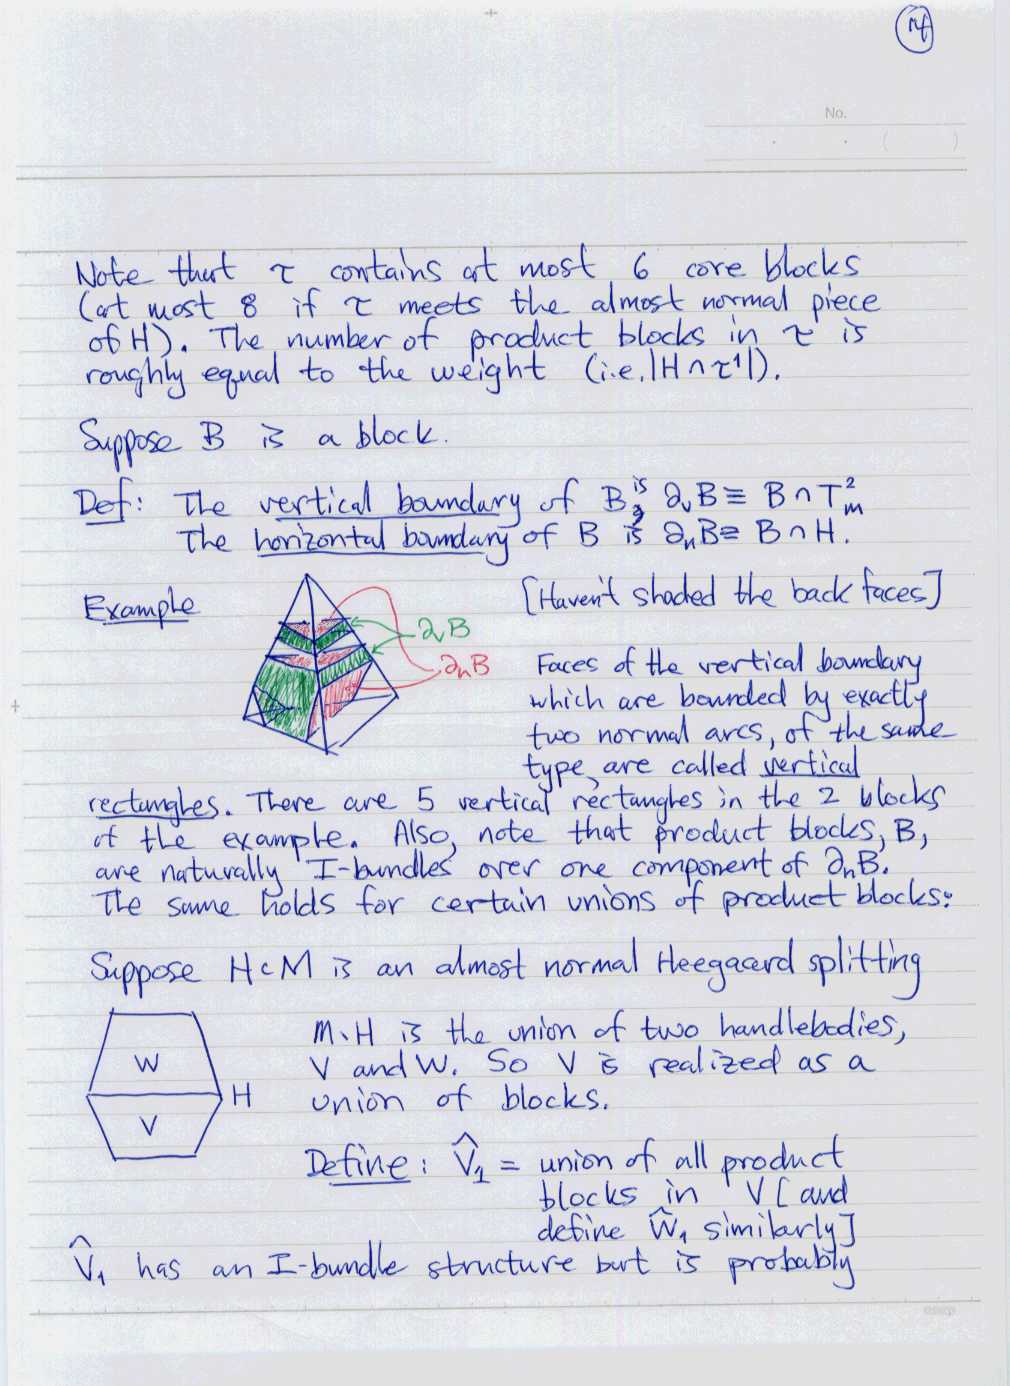 14
No.
Note that τ contains at most 6 core blocks
(at most 8 if τ meets the almost normal piece
of H). The number of product blocks in τ is
roughly equal to the weight (i.e. |H∩τ¹|).
Suppose B is a block.
Def: The vertical boundary of B, is ∂ᵥB ≡ B∩T²ₘ
The horizontal boundary of B is ∂ₕB ≡ B∩H.
Example
[Haven't shaded the back faces]
∂ᵥB
∂ₕB
Faces of the vertical boundary
which are bounded by exactly
two normal arcs, of the same
type, are called vertical
rectangles. There are 5 vertical rectangles in the 2 blocks
of the example. Also, note that product blocks, B,
are naturally I-bundles over one component of ∂ₕB.
The same holds for certain unions of product blocks:
Suppose H⊂M is an almost normal Heegaard splitting
W
V
H
M∖H is the union of two handlebodies,
V and W. So V is realized as a
union of blocks.
Define: V̂₁ = union of all product
blocks in V [and
define Ŵ₁ similarly]
V̂₁ has an I-bundle structure but is probably